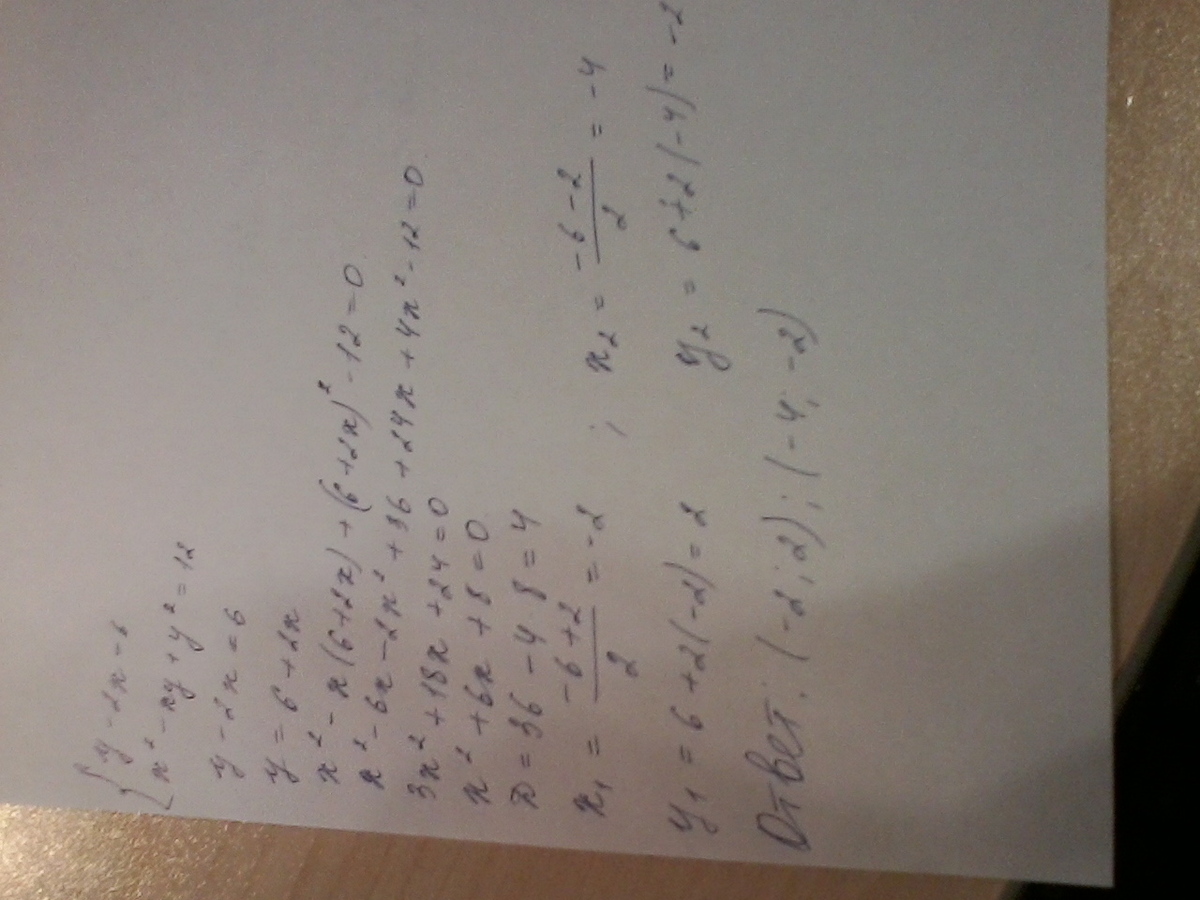 { y - 2x = 6
x² - xy + y² = 12
y - 2x = 6
y = 6 + 2x
x² - x(6+2x) + (6+2x)² - 12 = 0
x² - 6x - 2x² + 36 + 24x + 4x² - 12 = 0
3x² + 18x + 24 = 0
x² + 6x + 8 = 0
D = 36 - 4·8 = 4
x₁ = (-6+2)/2 = -2 ; x₂ = (-6-2)/2 = -4
y₁ = 6 + 2(-2) = 2 y₂ = 6 + 2(-4) = -2
Ответ: (-2; 2); (-4; -2)